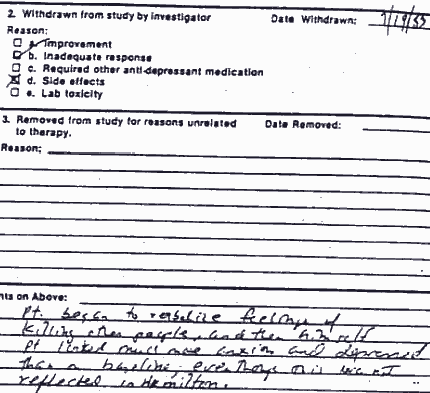 2. Withdrawn from study by investigator Date Withdrawn: 7/19/85
Reason:
a. Improvement
b. Inadequate response
c. Required other anti-depressant medication
d. Side effects
e. Lab toxicity
3. Removed from study for reasons unrelated Date Removed:
to therapy.
Reason:
nts on Above:
Pt. began to verbalize feelings of
killing other people, and then himself
Pt looked much more anxious and depressed
than on baseline, even though this was not
reflected in Hamilton.